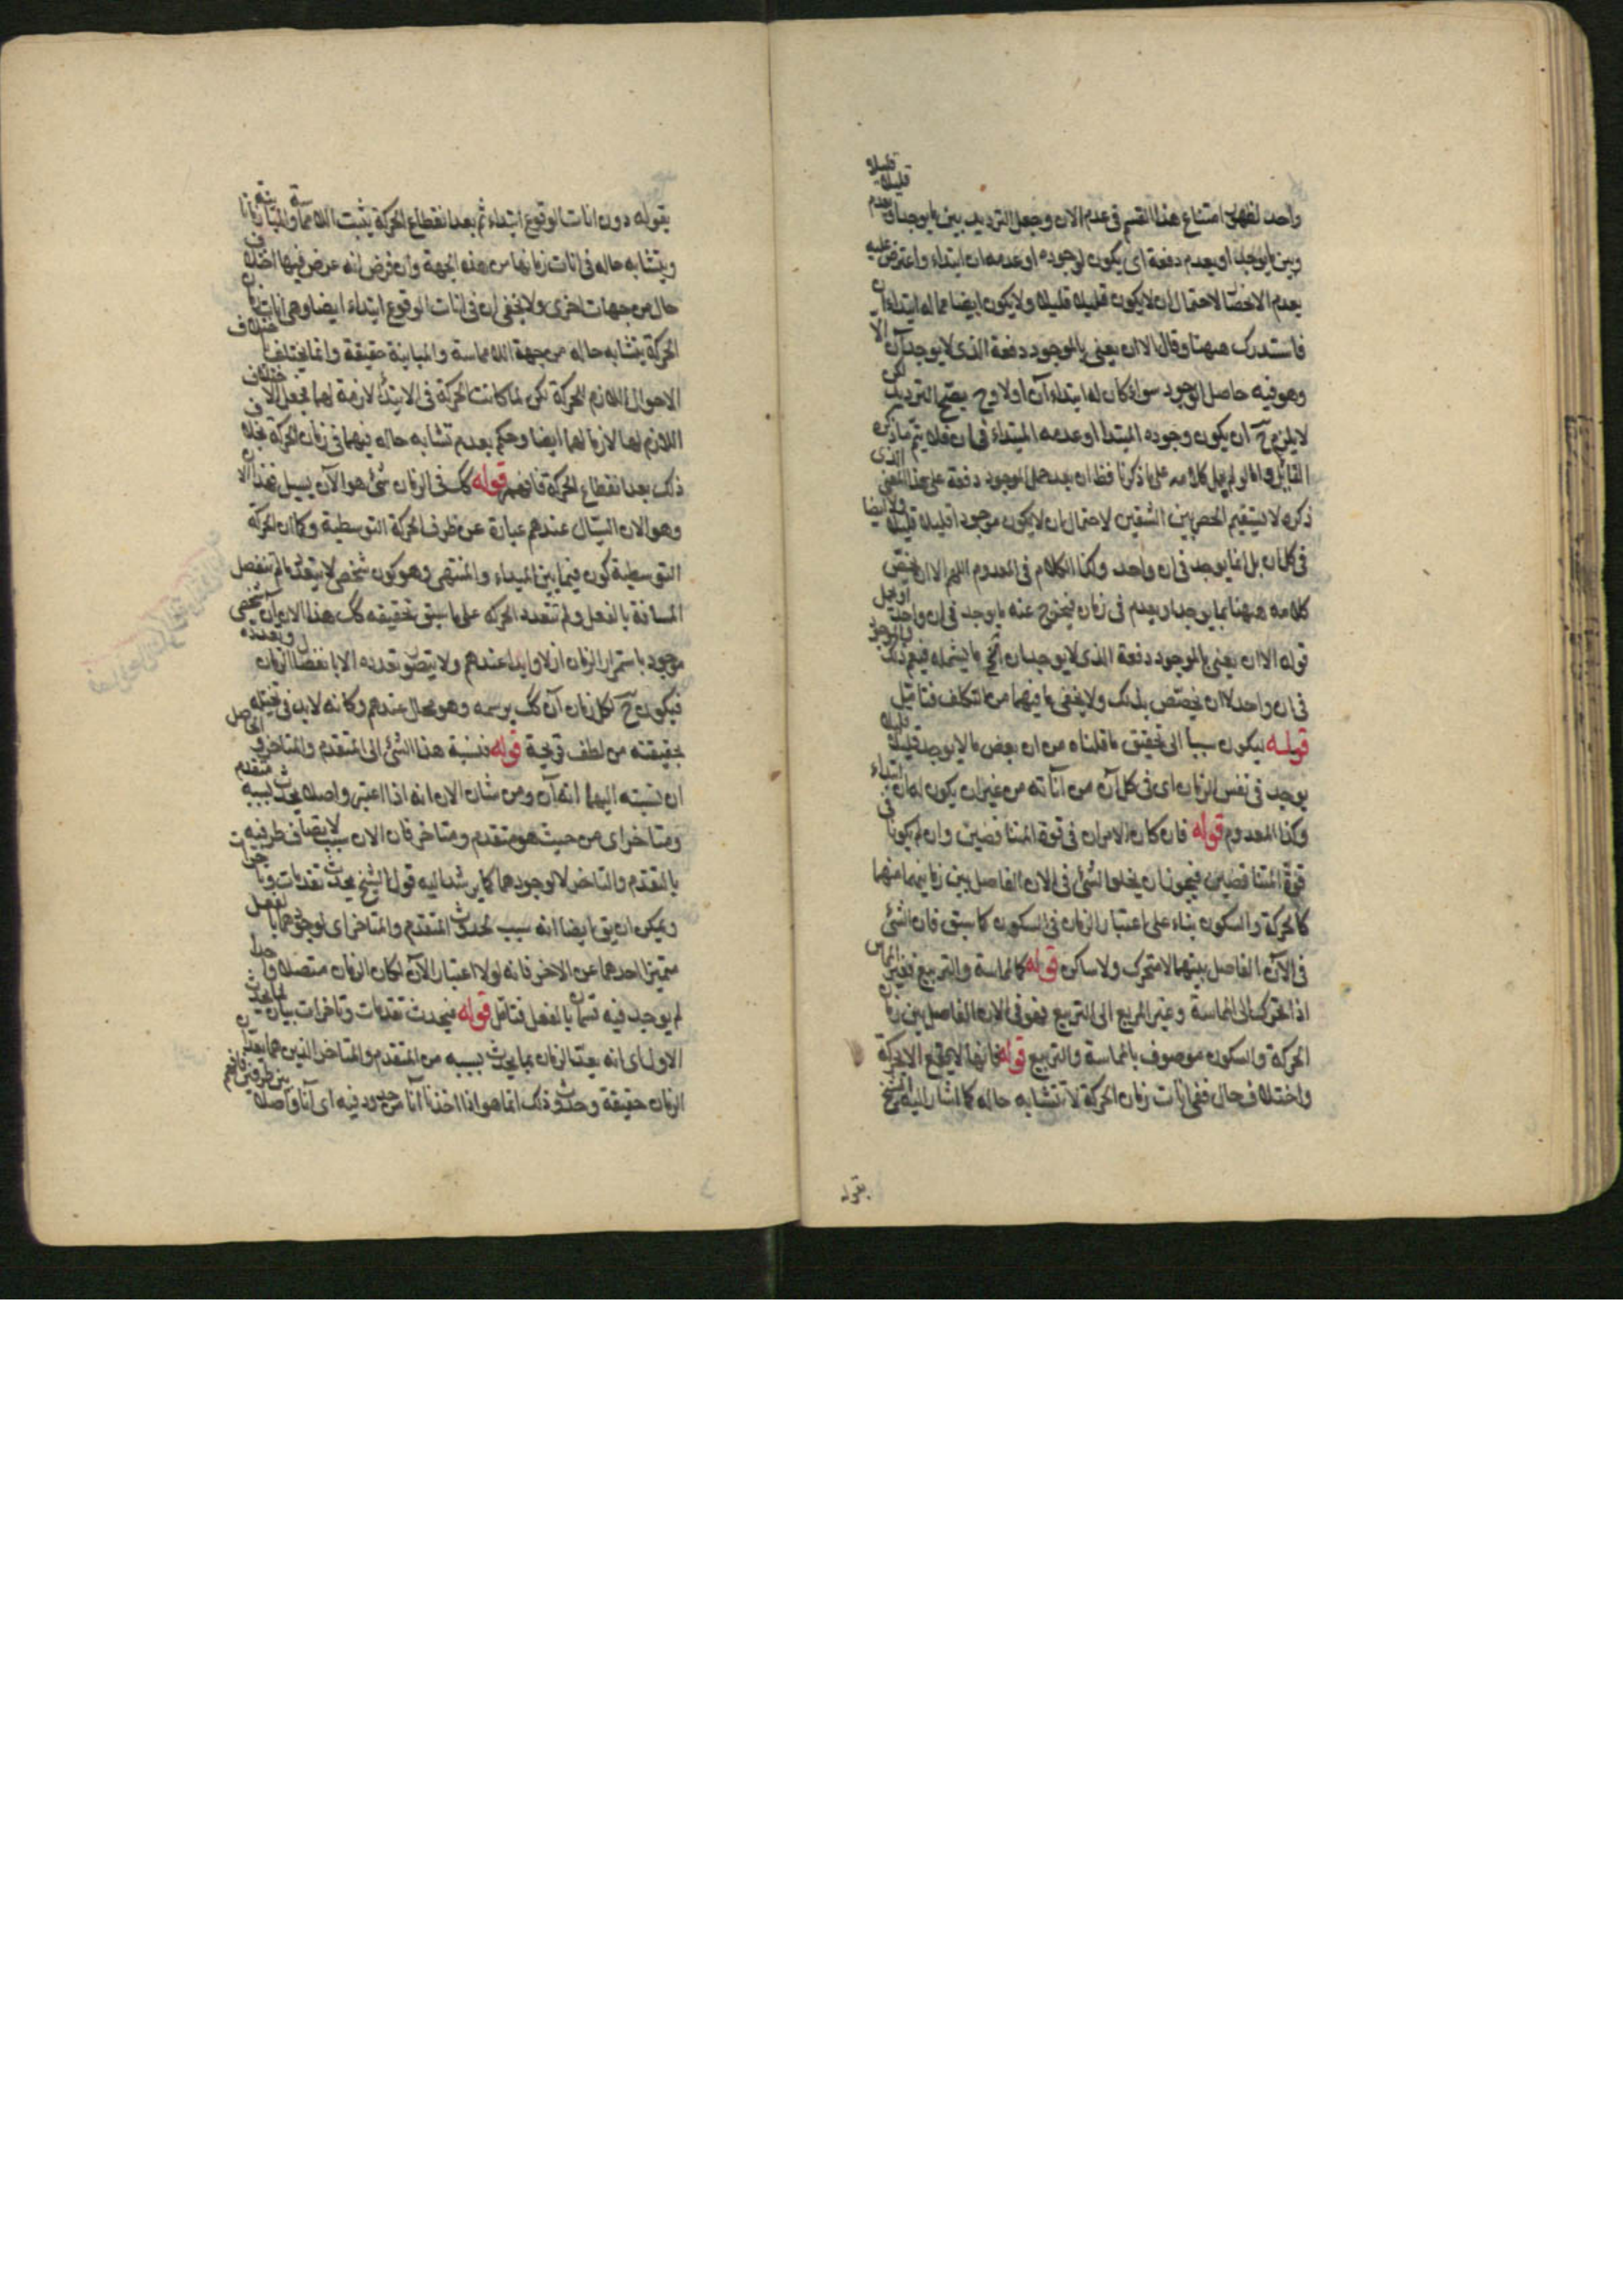 واحد لظهور امتناع هذا القسم فى عدم الان وجعل الترديد بين ما يوجد او يعدم قليلا قليلا
وبين ما يوجد او يعدم دفعة اى يكون لوجوده او عدمه ان ابتداء واعترض عليه
بعدم الانحصار لاحتمال ان لا يكون قليلا قليلا ولا يكون ايضا مما له ابتداء ان
فاستدرك ههنا وقال الا ان يعنى بالموجود دفعة الذى لا يوجد آن الا
وهو فيه حاصل الوجود سواء كان له ابتداء آن اولا وح يصح الترديد لكن
لا يلزم ح ان يكون وجوده المبتدا او عدمه المبتداء فى ان فلا يتم ما ذكره
القائل واما لو لم يحمل كلامه على ما ذكرنا فظ ان بعد حمل الموجود دفعة على هذا المعنى الذى
ذكره لا يستقيم الحصر بين الشقين لاحتمال ان لا يكون موجودا قليلا قليلا ولا ايضا
فى كل ان بل انما يوجد فى ان واحد وكذا الكلام فى المعدوم اللهم الا ان يخص
كلامه ههنا بما يوجد او يعدم فى زمان فيخرج عنه ما يوجد فى ان واحد او يحمل
قوله الا ان يعنى بالموجود دفعة الذى لا يوجد ان الخ ما يشمله فيعم ذلك
فى ان واحد لا ان يختص بذلك ولا يخفى ما فيهما من التكلف فتامل
قوله ليكون سببا الى تحقيق ما قلناه من ان بعض ما لا يوجد قليلا قليلا
يوجد فى نفس الزمان اى فى كل آن من آناته من غير ان يكون له ان ابتداء
وكذا المعدوم قوله فان كان الامران فى قوة المتناقضين وان لم يكونا فى
قوة المتناقضين فيجوز ان يخلو الشئ فى الان الفاصل بين زمانيهما منهما
كالحركة والسكون بناء على اعتبار الزمان فى السكون كما سبق فان الشئ
فى الآن الفاصل بينهما لا متحرك ولا ساكن قوله كالمماسة والتربيع فغير المماس
اذا تحرك الى المماسة وغير المربع الى التربيع فهو فى الان الفاصل بين زمان
الحركة والسكون موصوف بالمماسة والتربيع قوله فانها لا يقع الا بحركة
واختلاف حال ففى انات زمان الحركة لا تتشابه حاله كما اشار اليه الشيخ
بقوله
بقوله دون انات الوقوع ابتداء ثم بعد انقطاع الحركة يثبت اللامماسة والمباينة
ويتشابه حاله فى انات زمانها من هذه الجهة وان فرض انه عرض فيها اختلاف
حال من جهات اخرى ولا يخفى ان فى انات الوقوع ابتداء ايضا وهى انات
الحركة يتشابه حاله من جهة اللامماسة والمباينة حقيقة وانما يختلف
الاحوال اللازم للحركة لكن لما كانت الحركة فى الابتداء لازمة لهما جعل الاختلاف
اللازم لها لازما لهما ايضا وحكم بعدم تشابه حاله فيهما فى زمان الحركة بخلاف
ذلك بعد انقطاع الحركة فافهم قوله كك فى الزمان شئ هو الآن يسيل فهذا الان
وهو الان السيال عندهم عبارة عن ظرف الحركة التوسطية وكما ان الحركة
التوسطية كون فيما بين المبداء والمنتهى وهو كون شخصى لا يتعدد ما لم تنفصل
المسافة بالفعل ولم تتعدد الحركه على ما سبق تحقيقه كك هذا الان آن شخصى
موجود باستمرار الزمان ازلا وابدا عندهم ولا يتصور تعدده الا بانفصال الزمان وتعدده
فيكون ح لكل زمان آن كك يرسمه وهو محال عندهم وكانه لا بد فى تخيله
بحقيقته من لطف قريحة قوله فنسبة هذا الشئ الى المتقدم والمتاخر
ان نسبته اليهما انه آن ومن شان الان انه اذا اعتبر واصلا يحدث بسببه متقدم
ومتاخر اى من حيث هو متقدم ومتاخر فان الان سبب لاتصاف طرفيه
بالتقدم والتاخر لا لوجودهما كما يرشد اليه قول الشيخ يحدث تقدمات وتاخرات
ويمكن ان يق ايضا انه سبب لحدوث المتقدم والمتاخر اى لوجودهما بالفعل
متميزا احدهما عن الاخر فانه لولا اعتبار الآن لكان الزمان متصلا واحدا
لم يوجد فيه قسمان بالفعل فتامل قوله فيحدث تقدمات وتاخرات بيان لما يحدث
الاول اى انه يعد الزمان بما يحدث بسببه من المتقدم والمتاخر الذين هما يعدان
الزمان حقيقة وحدوث ذلك انما هو اذا اخذنا آنا من حدود فيه اى آنا واصلا بين طرفين فافهم